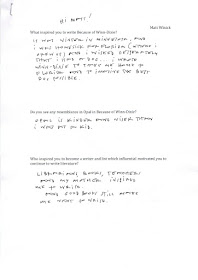 Hi Matt!
Matt Wilock
What inspired you to write Because of Winn-Dixie?
IT WAS WINTER IN MINNESOTA, AND
I WAS HOMESICK FOR FLORIDA (WHERE I
GREW UP) AND I MISSED DESPERATELY
THAT I HAD A DOG. I WROTE
WINN-DIXIE TO TAKE ME BACK TO
FLORIDA AND TO IMAGINE THE BEST
DOG POSSIBLE.
Do you see any resemblances in Opal in Because of Winn-Dixie?
OPAL IS KINDER AND WISER THAN
I WAS AS A KID.
Who inspired you to become a writer and like which influential motivated you to
continue to write literature?
LIBRARIANS, BOOKS, TEACHERS
AND MY MOTHER INSPIRED
ME TO WRITE.
AND GOOD BOOKS STILL MAKE
ME WANT TO WRITE.